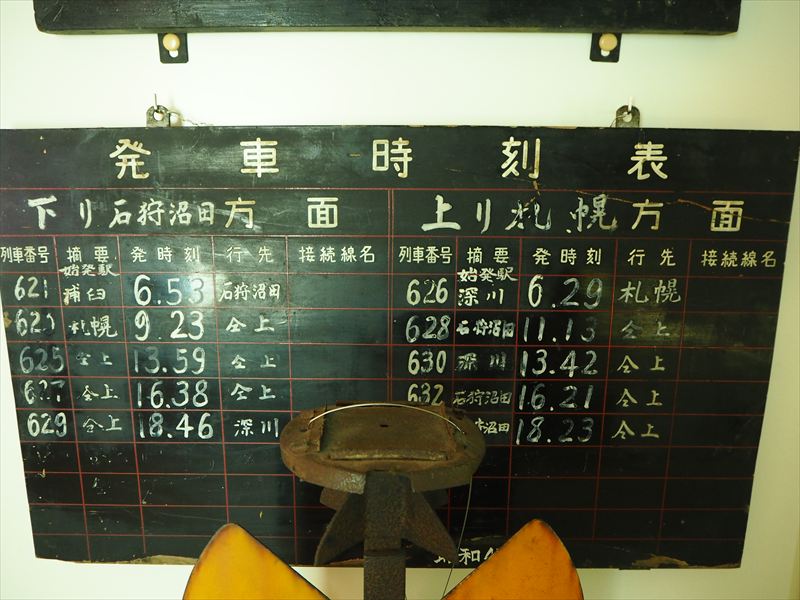 発車時刻表
下り石狩沼田方面 上り札幌方面
列車番号 摘要 発時刻 行先 接続線名 列車番号 摘要 発時刻 行先 接続線名
始発駅 始発駅
621 浦臼 6.53 石狩沼田 626 深川 6.29 札幌
札幌 9.23 仝上 628 石狩沼田 11.13 仝上
625 仝上 13.59 仝上 630 深川 13.42 仝上
627 仝上 16.38 仝上 632 石狩沼田 16.21 仝上
629 仝上 18.46 深川 沼田 18.23 仝上
和